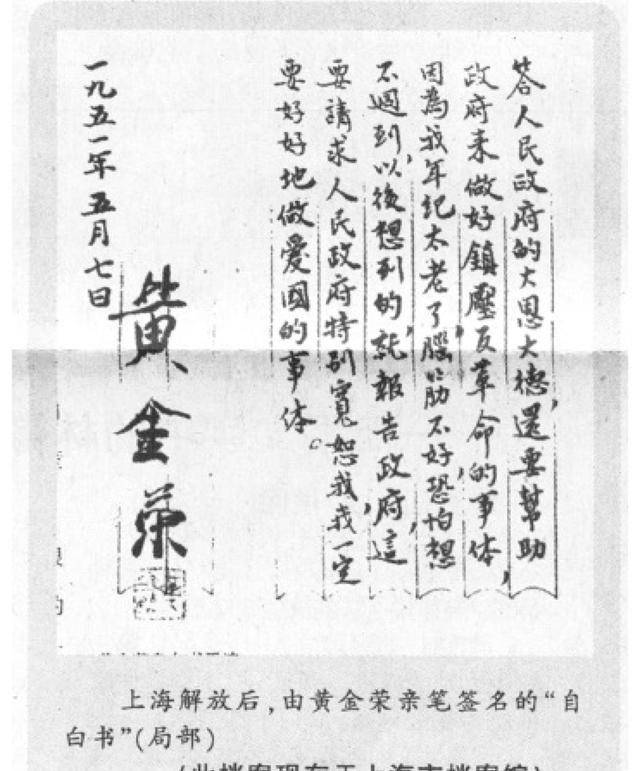 荅人民政府的大恩大德,還要幫助
政府来做好鎮壓反革命的事体,
因為我年纪太老了,腦筋不好,恐怕想
不週到,以後想到的就報告政府,這
要請求人民政府特别寬恕我,我一定
要好好地做爱國的事体。
一九五一年五月七日
黄金荣
上海解放后,由黄金荣亲笔签名的“自
白书”(局部)
(此档案现存于上海市档案馆)